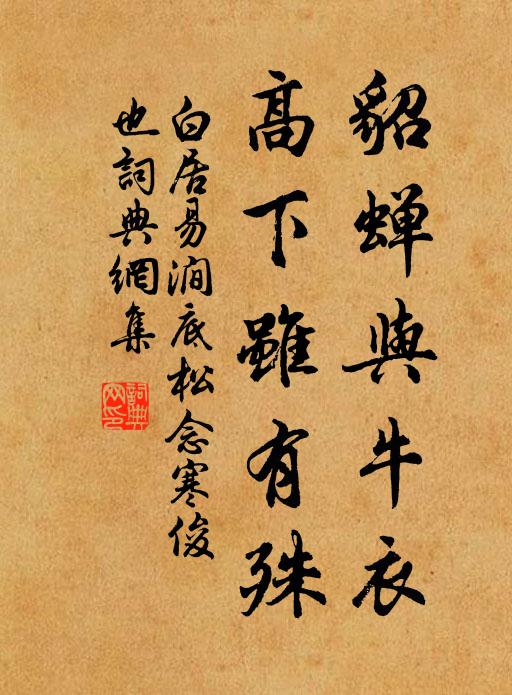 貂蝉與牛衣
高下雖有殊
白居易澗底松念寒俊
也詞典網集
詞典
网印